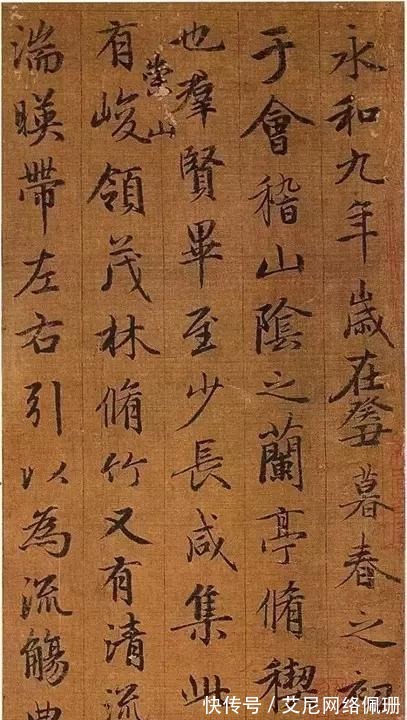 永和九年歲在癸丑暮春之初
于會稽山陰之蘭亭脩禊
也羣賢畢至少長咸集此
有崇山峻領茂林脩竹又有清流
湍暎帶左右引以為流觴曲
快传号/艾尼网络佩珊